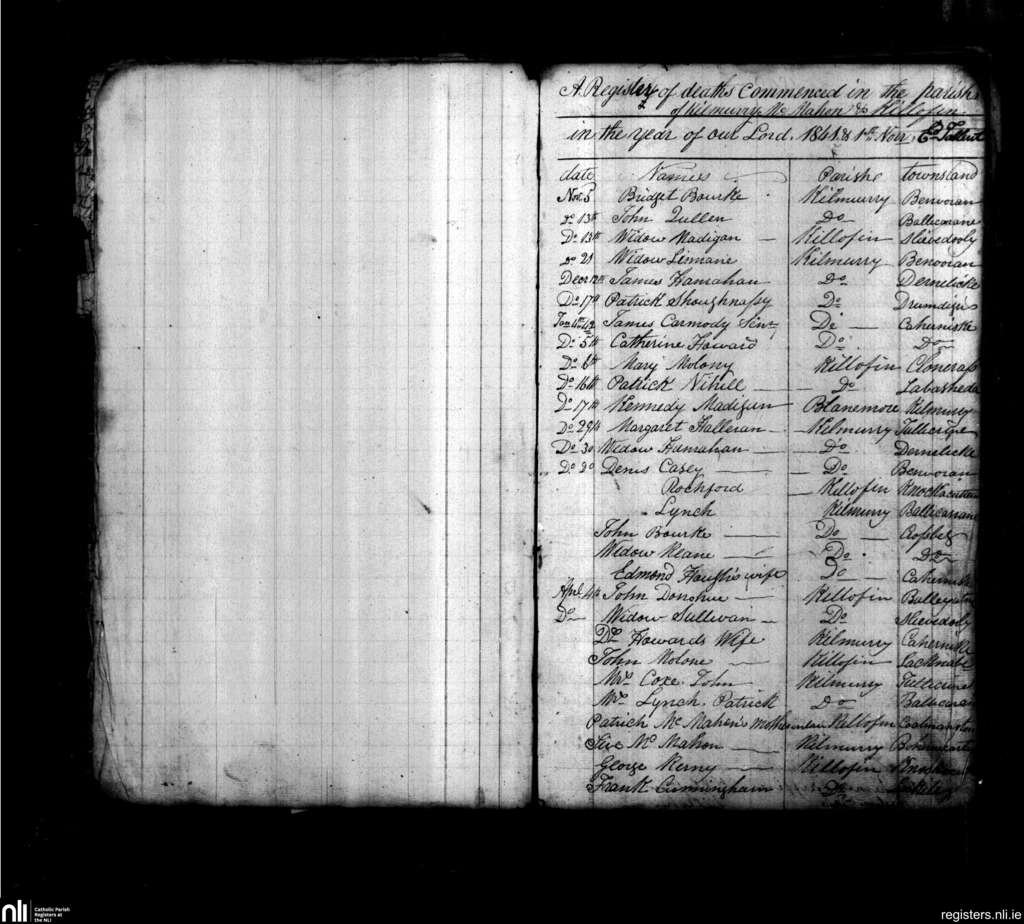 A Register of deaths Commenced in the parish
of Kilmurry Mc Mahon & Killofin
in the year of our Lord. 1841 & 1st Novr. Ed Talbot
date Names Parish townsland
Novr. 5 Bridget Bourke Kilmurry Benvoran
Do 13th John Do
Do 13th Widow Madigan Killofin Slievedooly
Do 21 Widow Kilmurry Benvoran
Decr 12th James Hanrahan Do Dernelicke
Do 17th Patrick Shoughnassy Do Drumdigus
Jan 4th 42 James Carmody Senr Do Caherniske
Do 5th Catherine Howard Do Do
Do 6th Mary Molony Killofin
Do 16th Patrick Nihill Do Labasheda
Do 17th Kennedy Madigan Blanemore Kilmurry
Do 29th Margaret Halleran Kilmurry
Do 30 Widow Hanrahan Do Dernelicke
Do Do Denis Casey Do Benvoran
Rochford Killofin
Lynch Kilmurry
John Bourke Do
Widow Keane Do Do
Edmond wife Do
Aprl 4th John Donohue Killofin
Do Widow Sullivan Do Slievedooly
Do Howards Wife Kilmurry Caherniske
John Molone Killofin
Mrs Coxe John Kilmurry
Mrs Lynch Patrick Do
Patrick Mc Mahon's motherinlaw Killofin
Mc Mahon Kilmurry
George Kerny Killofin
Frank Cunningham Do
nli Catholic Parish
Registers at
the NLI
registers.nli.ie